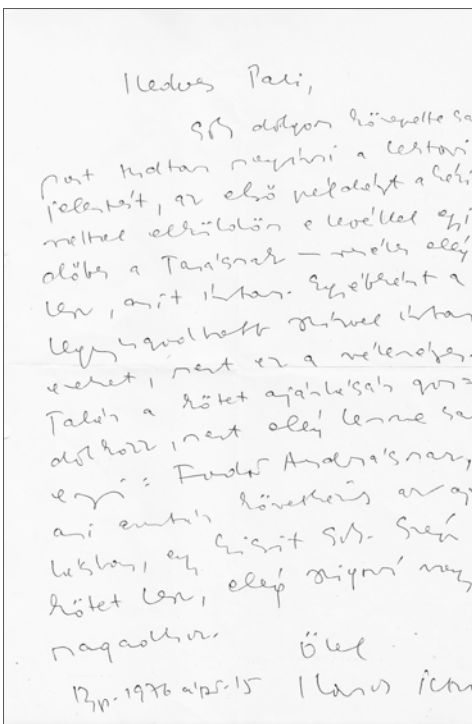 Kedves Pali,
Sok dolgom közepette csa
most tudtam megírni a lektori
jelentést, az első példányt a kézi
rattal elküldöm e levéllel egy
időben a Tanácsnak — remélem elég
lesz, amit írtam. Egyébként a
legnyugodtabb szívvel írtam
ezeket, mert ez a véleményem.
Talán a kötet ajánlásán gon=
dolkozz, mert elég lenne csa
egyszer: Fodor Andrásnak,
ami ezután következik az aj
lásban, egy kicsit sok. Szép
kötet lesz, elég szigorú vagy
magadhoz.
Ölel
Bp. 1976 ápr. 15